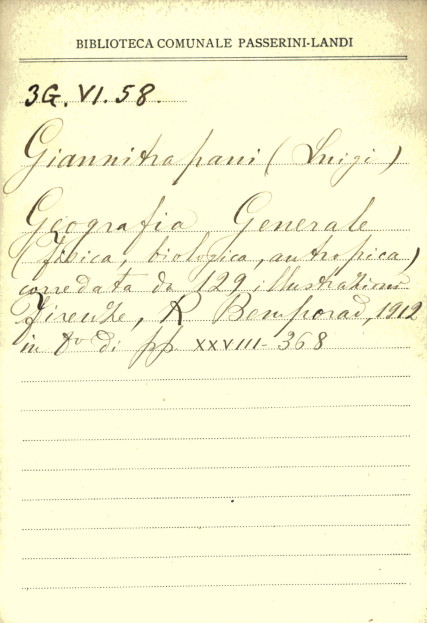 BIBLIOTECA COMUNALE PASSERINI-LANDI
3G. VI. 58.
Giannitrapani (Luigi)
Geografia Generale
(fisica, biologica, antropica)
corredata da 129 illustrazioni
Firenze, R Bemporad, 1912
in 8º di pp XXVIII-368